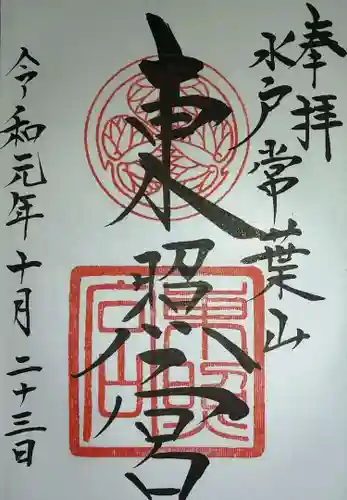 奉拝
水戸常葉山
東照宮
令和元年十月二十三日